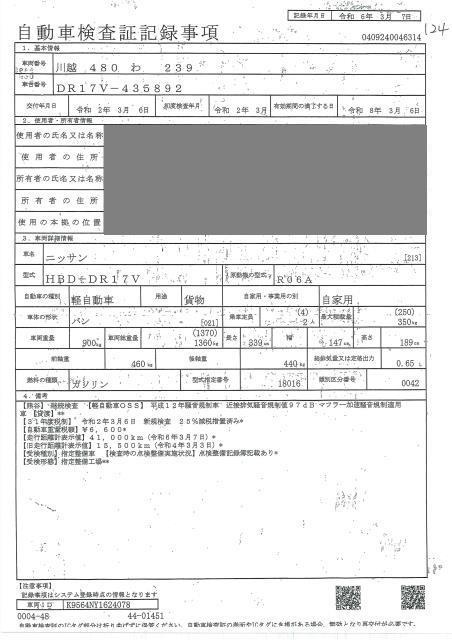 記録年月日 令和 6年 3月 7日
124
自動車検査証記録事項
0409240046314
1．基本情報
車両番号 川越 480 わ 239
車台番号 DR17V-435892
交付年月日 令和 2年 3月 6日 初度検査年月 令和 2年 3月 有効期間の満了する日 令和 8年 3月 6日
2．使用者・所有者情報
使用者の氏名又は名称
使用者の住所
所有者の氏名又は名称
所有者の住所
使用の本拠の位置
3．車両詳細情報
車名 ニッサン [213]
型式 HBD-DR17V 原動機の型式 R06A
自動車の種別 軽自動車 用途 貨物 自家用・事業用の別 自家用
車体の形状 バン [021] 乗車定員 (4) 2人 最大積載量 (250) 350kg
車両重量 900kg 車両総重量 (1370) 1360kg 長さ 339cm 幅 147cm 高さ 189cm
前軸重 460kg 後軸重 440kg 総排気量又は定格出力 0.65 L
燃料の種類 ガソリン 型式指定番号 18016 類別区分番号 0042
4．備考
【熊谷】 継続検査 【軽自動車OSS】 平成12年騒音規制車 近接排気騒音規制値97dB マフラー加速騒音規制適用
車 【貸渡】**
【31年度税制】 令和2年3月6日 新規検査 25%減税措置済み*
【自動車重量税額】 ¥6,600*
【走行距離計表示値】 41,000km（令和6年3月7日）*
【旧走行距離計表示値】 15,500km（令和4年3月3日）*
【受検種別】 指定整備車 【検査時の点検整備実施状況】 点検整備記録簿記載あり*
【受検形態】 指定整備工場**
【注意事項】
記録事項はシステム登録時点の情報となります
車両ID K9564NY1624078
0004-48 44-01451